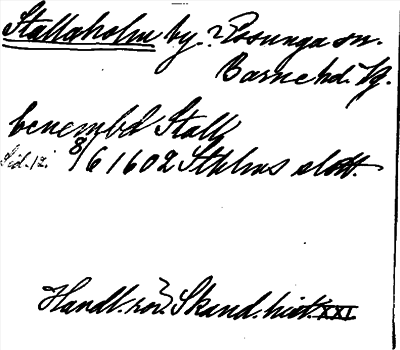 Stallaholm by. ? Posunga sn.
Barne hd. Vg.
benembd Stall
Sid. 12. 8/6 1602 Sthlms slott.
Handl. rör. Skand. hist. XXI